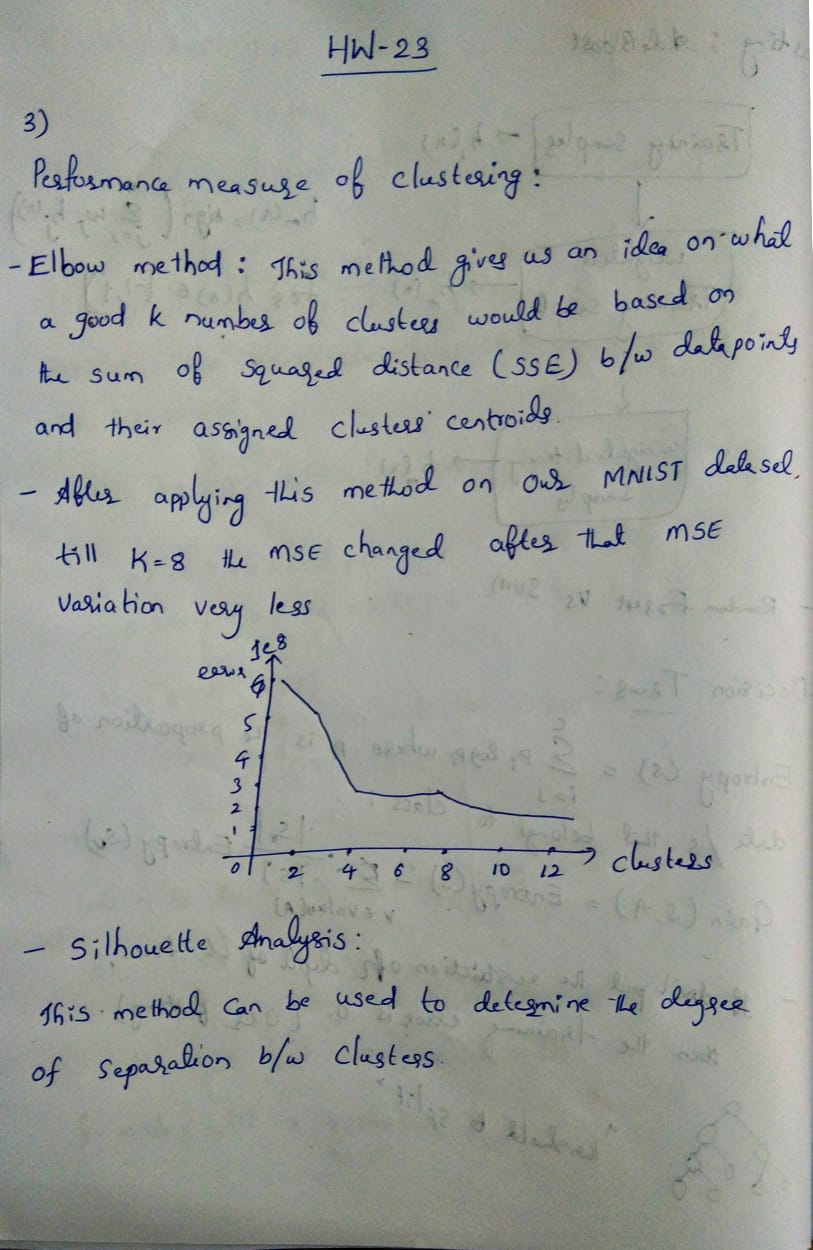 HW-23
3)
Performance measure of clustering:
- Elbow method: This method gives us an idea on what
a good k number of clusters would be based on
the sum of squared distance (SSE) b/w datapoints
and their assigned clusters' centroids.
- After applying this method on our MNIST dataset,
till K=8 the MSE changed after that MSE
variation very less
1e8
error
6
5
4
3
2
1
0 2 4 6 8 10 12 clusters
- Silhouette Analysis:
This method can be used to determine the degree
of separation b/w clusters.